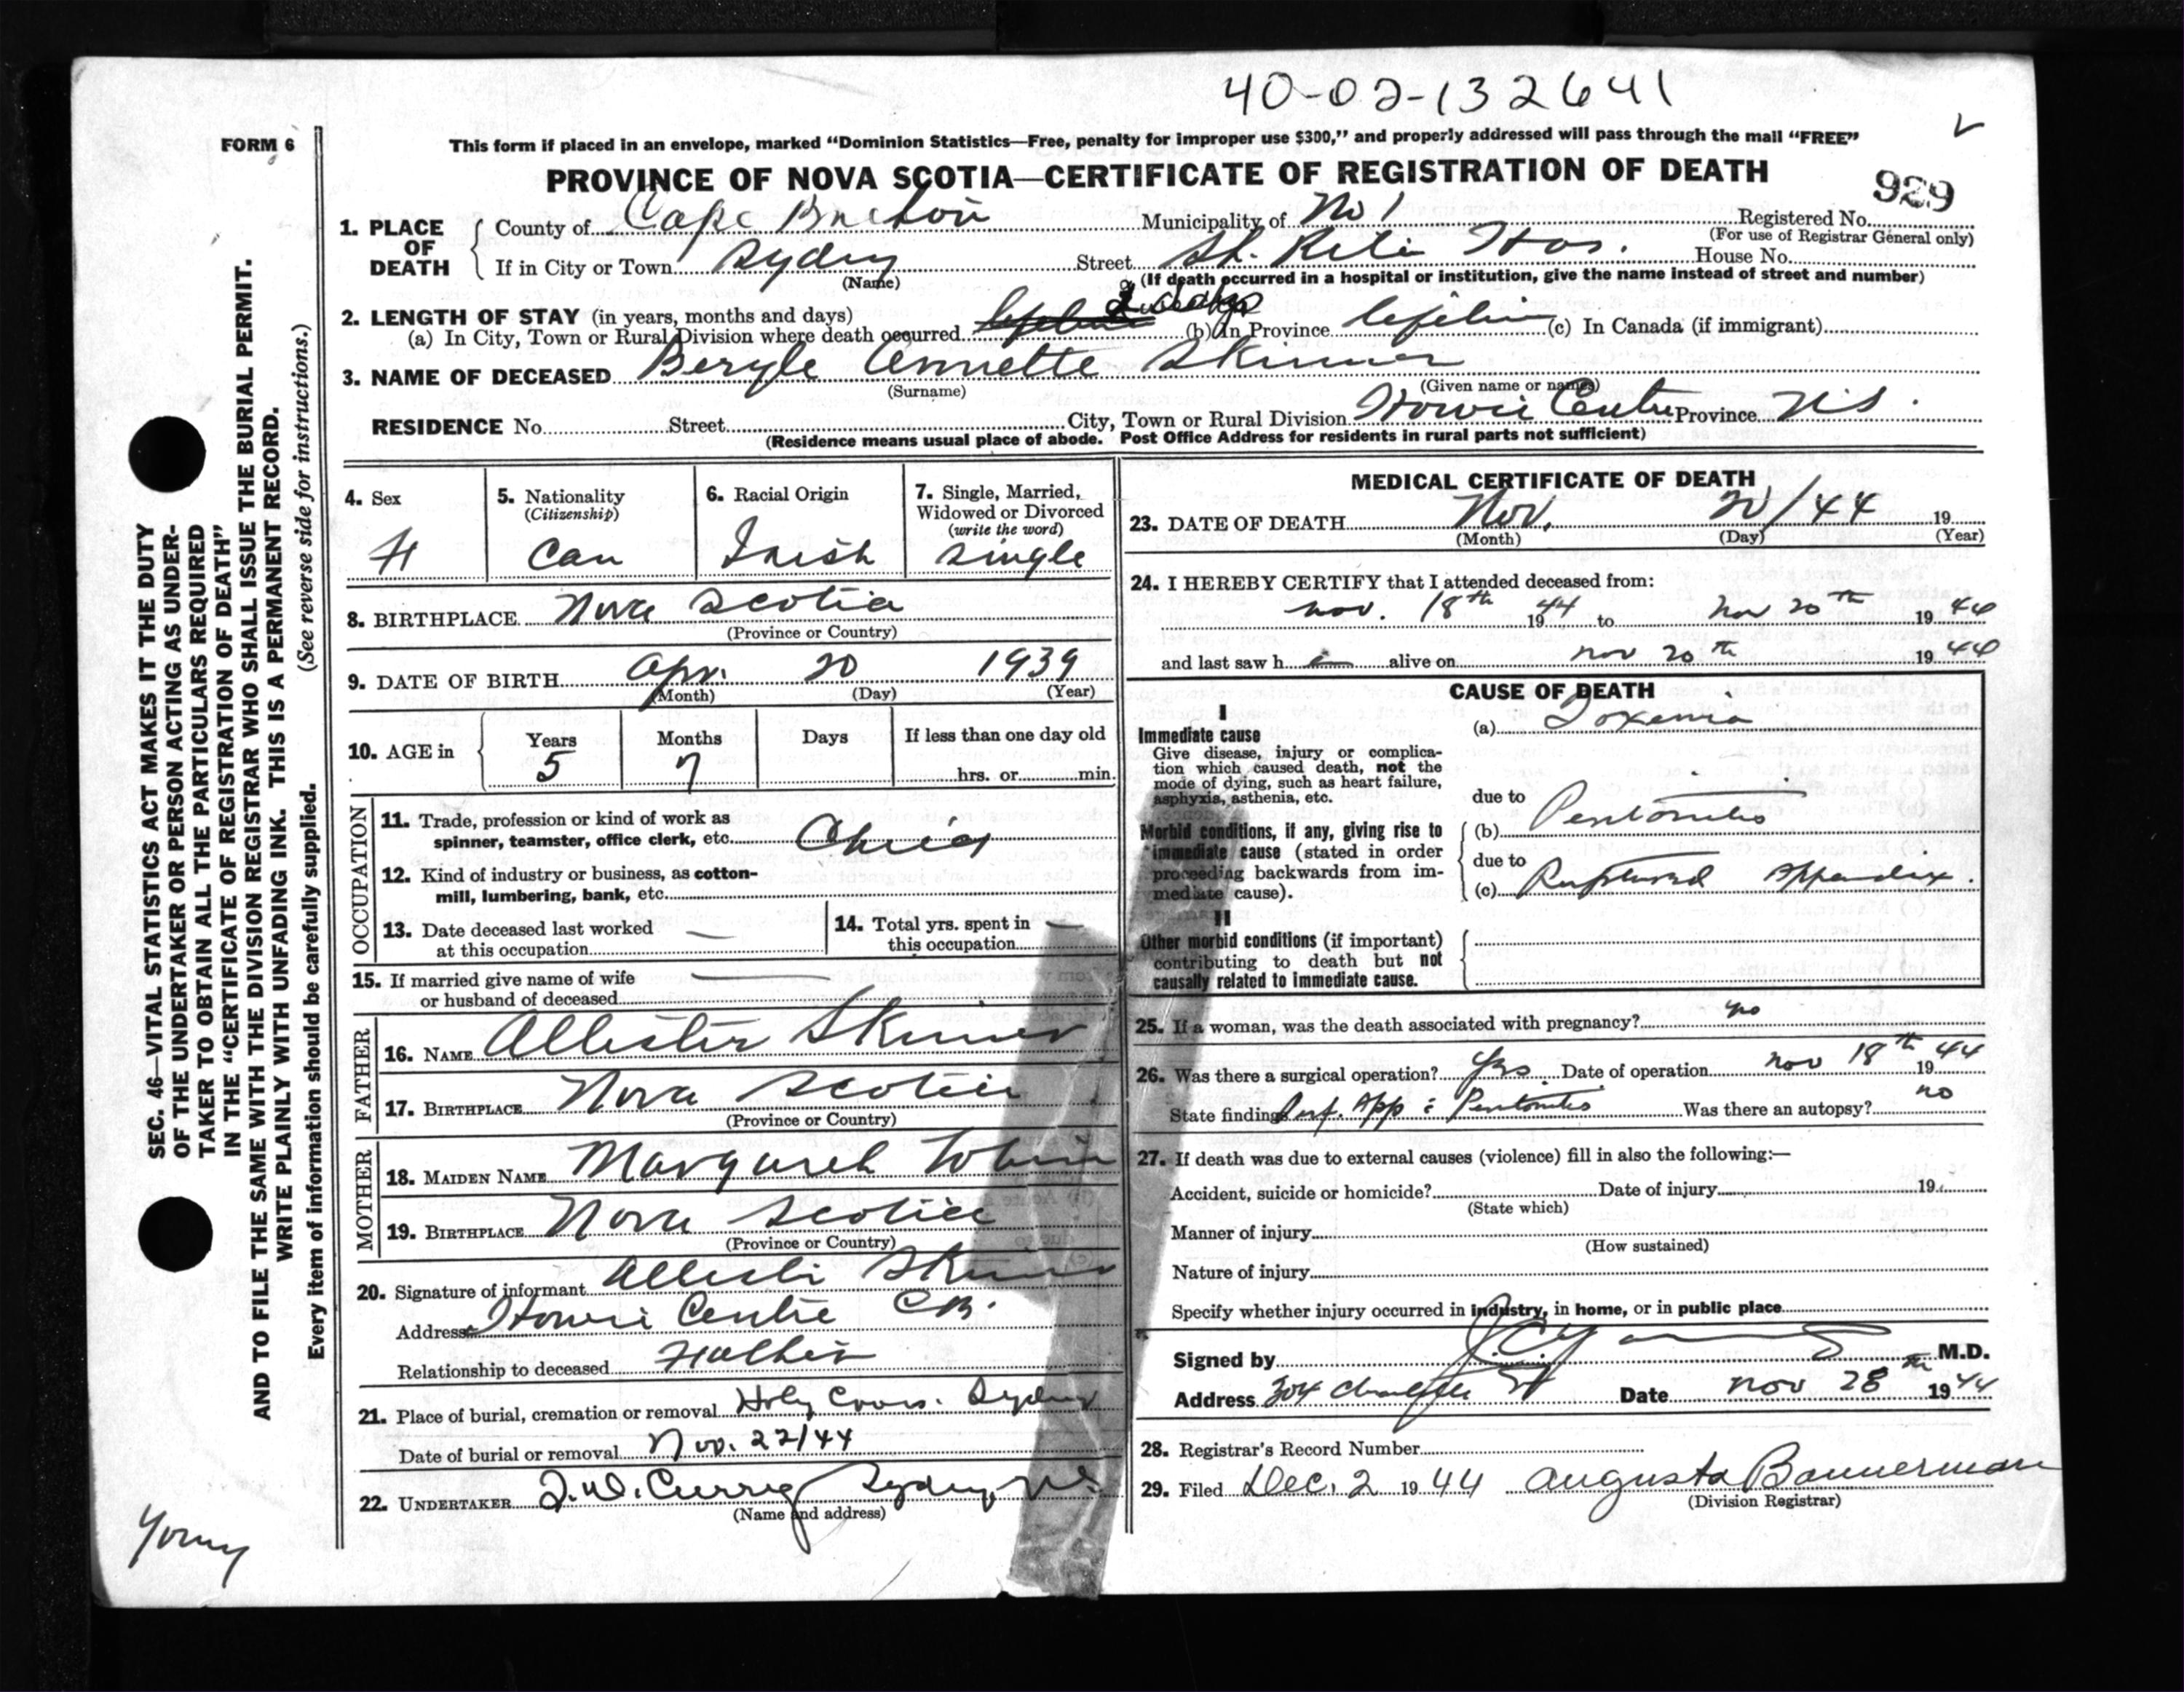 40-02-132641
FORM 6
This form if placed in an envelope, marked “Dominion Statistics—Free, penalty for improper use $300,” and properly addressed will pass through the mail “FREE”
PROVINCE OF NOVA SCOTIA—CERTIFICATE OF REGISTRATION OF DEATH
929
1. PLACE OF DEATH
County of Cape Breton Municipality of No 1 Registered No.
(For use of Registrar General only)
If in City or Town Sydney Street St. Rita Hos. House No.
(Name) (If death occurred in a hospital or institution, give the name instead of street and number)
2. LENGTH OF STAY (in years, months and days)
(a) In City, Town or Rural Division where death occurred 2 days (b) In Province lifetime (c) In Canada (if immigrant)
3. NAME OF DECEASED Beryle Annette Skinner
(Surname) (Given name or names)
RESIDENCE No. Street City, Town or Rural Division Howie Centre Province N.S.
(Residence means usual place of abode. Post Office Address for residents in rural parts not sufficient)
4. Sex
5. Nationality (Citizenship) Can
6. Racial Origin Irish
7. Single, Married, Widowed or Divorced (write the word) Single
8. BIRTHPLACE Nova Scotia
(Province or Country)
9. DATE OF BIRTH Apr. 20 1939
(Month) (Day) (Year)
10. AGE in Years 5 Months 7 Days If less than one day old hrs. or min.
OCCUPATION
11. Trade, profession or kind of work as spinner, teamster, office clerk, etc. Child
12. Kind of industry or business, as cotton-mill, lumbering, bank, etc.
13. Date deceased last worked at this occupation —
14. Total yrs. spent in this occupation —
15. If married give name of wife or husband of deceased —
FATHER
16. NAME Allister Skinner
17. BIRTHPLACE Nova Scotia
(Province or Country)
MOTHER
18. MAIDEN NAME Margaret Tobin
19. BIRTHPLACE Nova Scotia
(Province or Country)
20. Signature of informant Allister Skinner
Address Howie Centre C.B.
Relationship to deceased Father
21. Place of burial, cremation or removal Holy Cross. Sydney
Date of burial or removal Nov. 22/44
22. UNDERTAKER T.W. Curry Sydney, N.S.
(Name and address)
MEDICAL CERTIFICATE OF DEATH
23. DATE OF DEATH Nov. 20/44 19
(Month) (Day) (Year)
24. I HEREBY CERTIFY that I attended deceased from:
Nov. 18th 1944 to Nov 20th 1944
and last saw h alive on Nov 20th 1944
CAUSE OF DEATH
I
Immediate cause
Give disease, injury or complication which caused death, not the mode of dying, such as heart failure, asphyxia, asthenia, etc.
(a) Toxemia
due to
Morbid conditions, if any, giving rise to immediate cause (stated in order proceeding backwards from immediate cause).
(b) Peritonitis
due to
(c) Ruptured Appendix.
II
Other morbid conditions (if important) contributing to death but not causally related to immediate cause.
25. If a woman, was the death associated with pregnancy? no
26. Was there a surgical operation? Yes. Date of operation Nov 18th 1944
State findings Perf. App & Peritonitis Was there an autopsy? no
27. If death was due to external causes (violence) fill in also the following:—
Accident, suicide or homicide? Date of injury 19
(State which)
Manner of injury
(How sustained)
Nature of injury
Specify whether injury occurred in industry, in home, or in public place
Signed by J.C. Young M.D.
Address 304 Charlotte St Date Nov 28th 1944
28. Registrar's Record Number
29. Filed Dec. 2 1944 Augusta Bannerman
(Division Registrar)
SEC. 46—VITAL STATISTICS ACT MAKES IT THE DUTY
OF THE UNDERTAKER OR PERSON ACTING AS UNDER-
TAKER TO OBTAIN ALL THE PARTICULARS REQUIRED
IN THE “CERTIFICATE OF REGISTRATION OF DEATH”
AND TO FILE THE SAME WITH THE DIVISION REGISTRAR WHO SHALL ISSUE THE BURIAL PERMIT.
WRITE PLAINLY WITH UNFADING INK. THIS IS A PERMANENT RECORD.
Every item of information should be carefully supplied. (See reverse side for instructions.)
Young